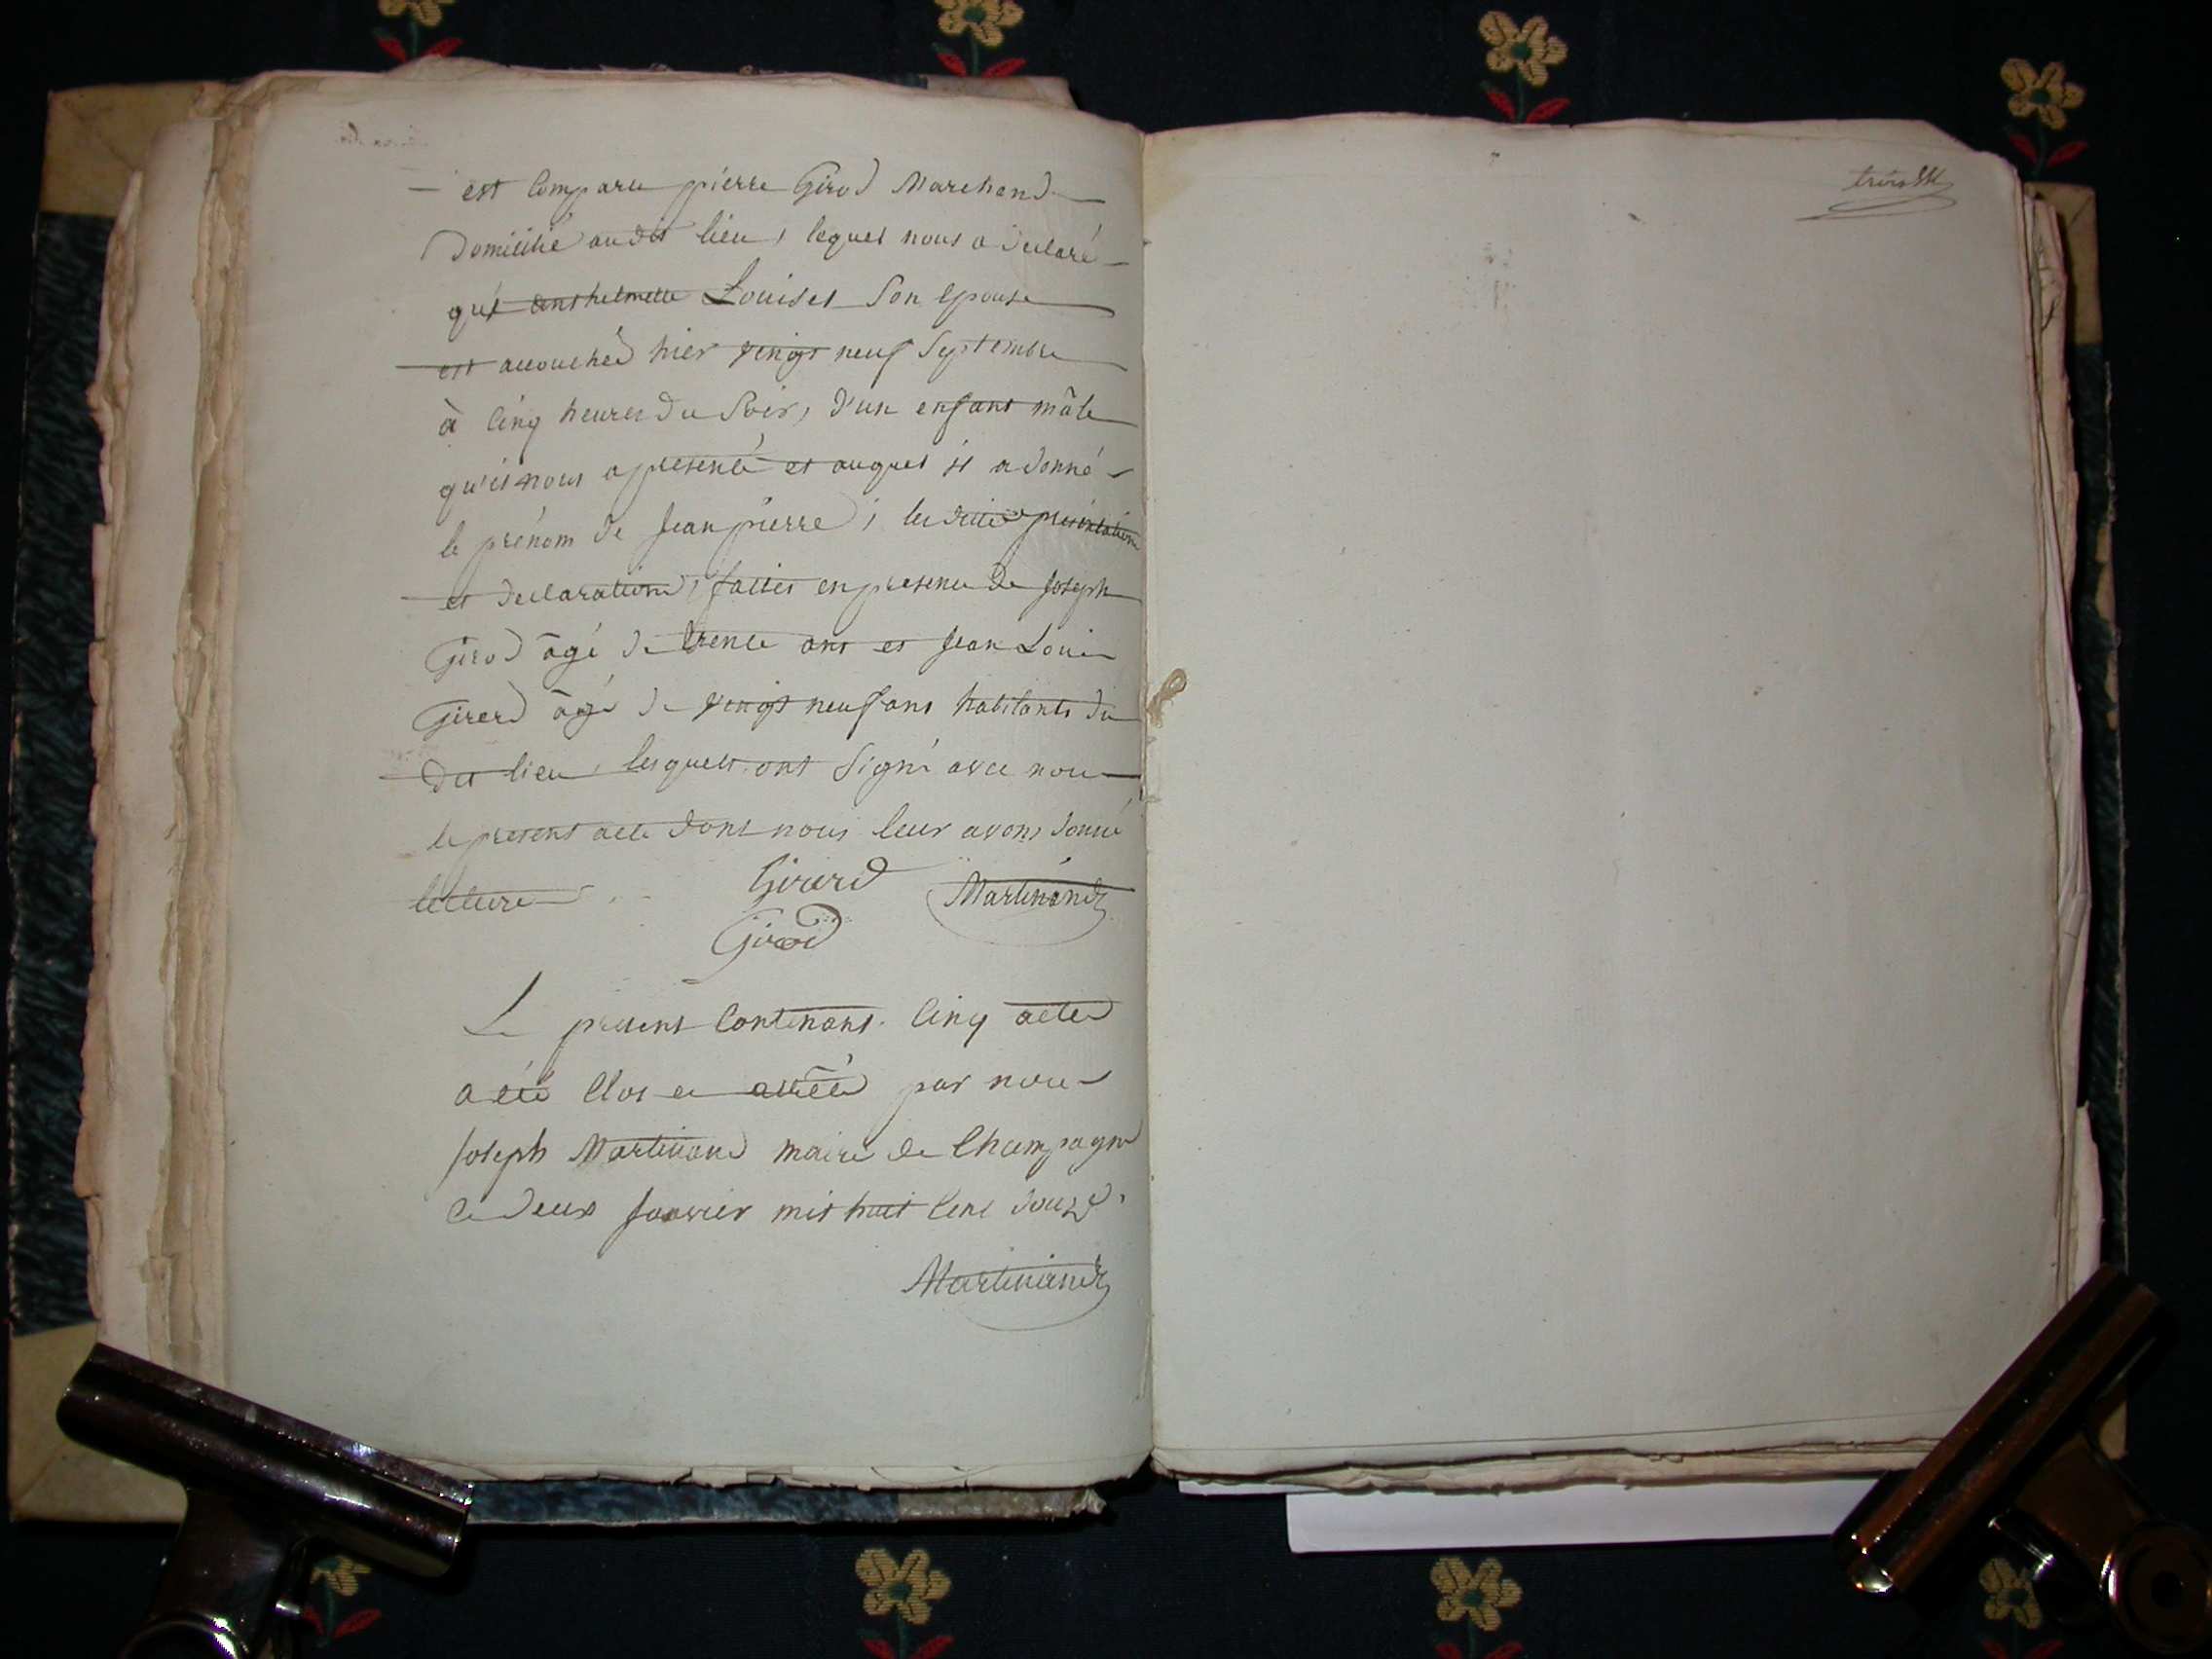 est Comparu pierre Girod Marchand
Domicilié audit lieu, lequel nous a déclaré
que anthelmette Louiset Son epouse
est accouchée hier vingt neuf Septembre
à Cinq heures du Soir, d'un enfant mâle
qu'il nous a presenté et auquel il a donné
le prénom de Jean pierre; lesdites presentation
et declaration, faites en presence de Joseph
Girod âgé de trente ans et Jean Louis
Girerd âgé de vingt neuf ans habitants du
dit lieu, lesquels ont Signé avec nous
le present acte dont nous leur avons donné
lecture
Girerd Martinand
Girod
Le present Contenant Cinq actes
a été Clos et arrêté par nous
Joseph Martinand maire de Champagne
le deux Janvier mil huit Cent douze.
Martinand
trois